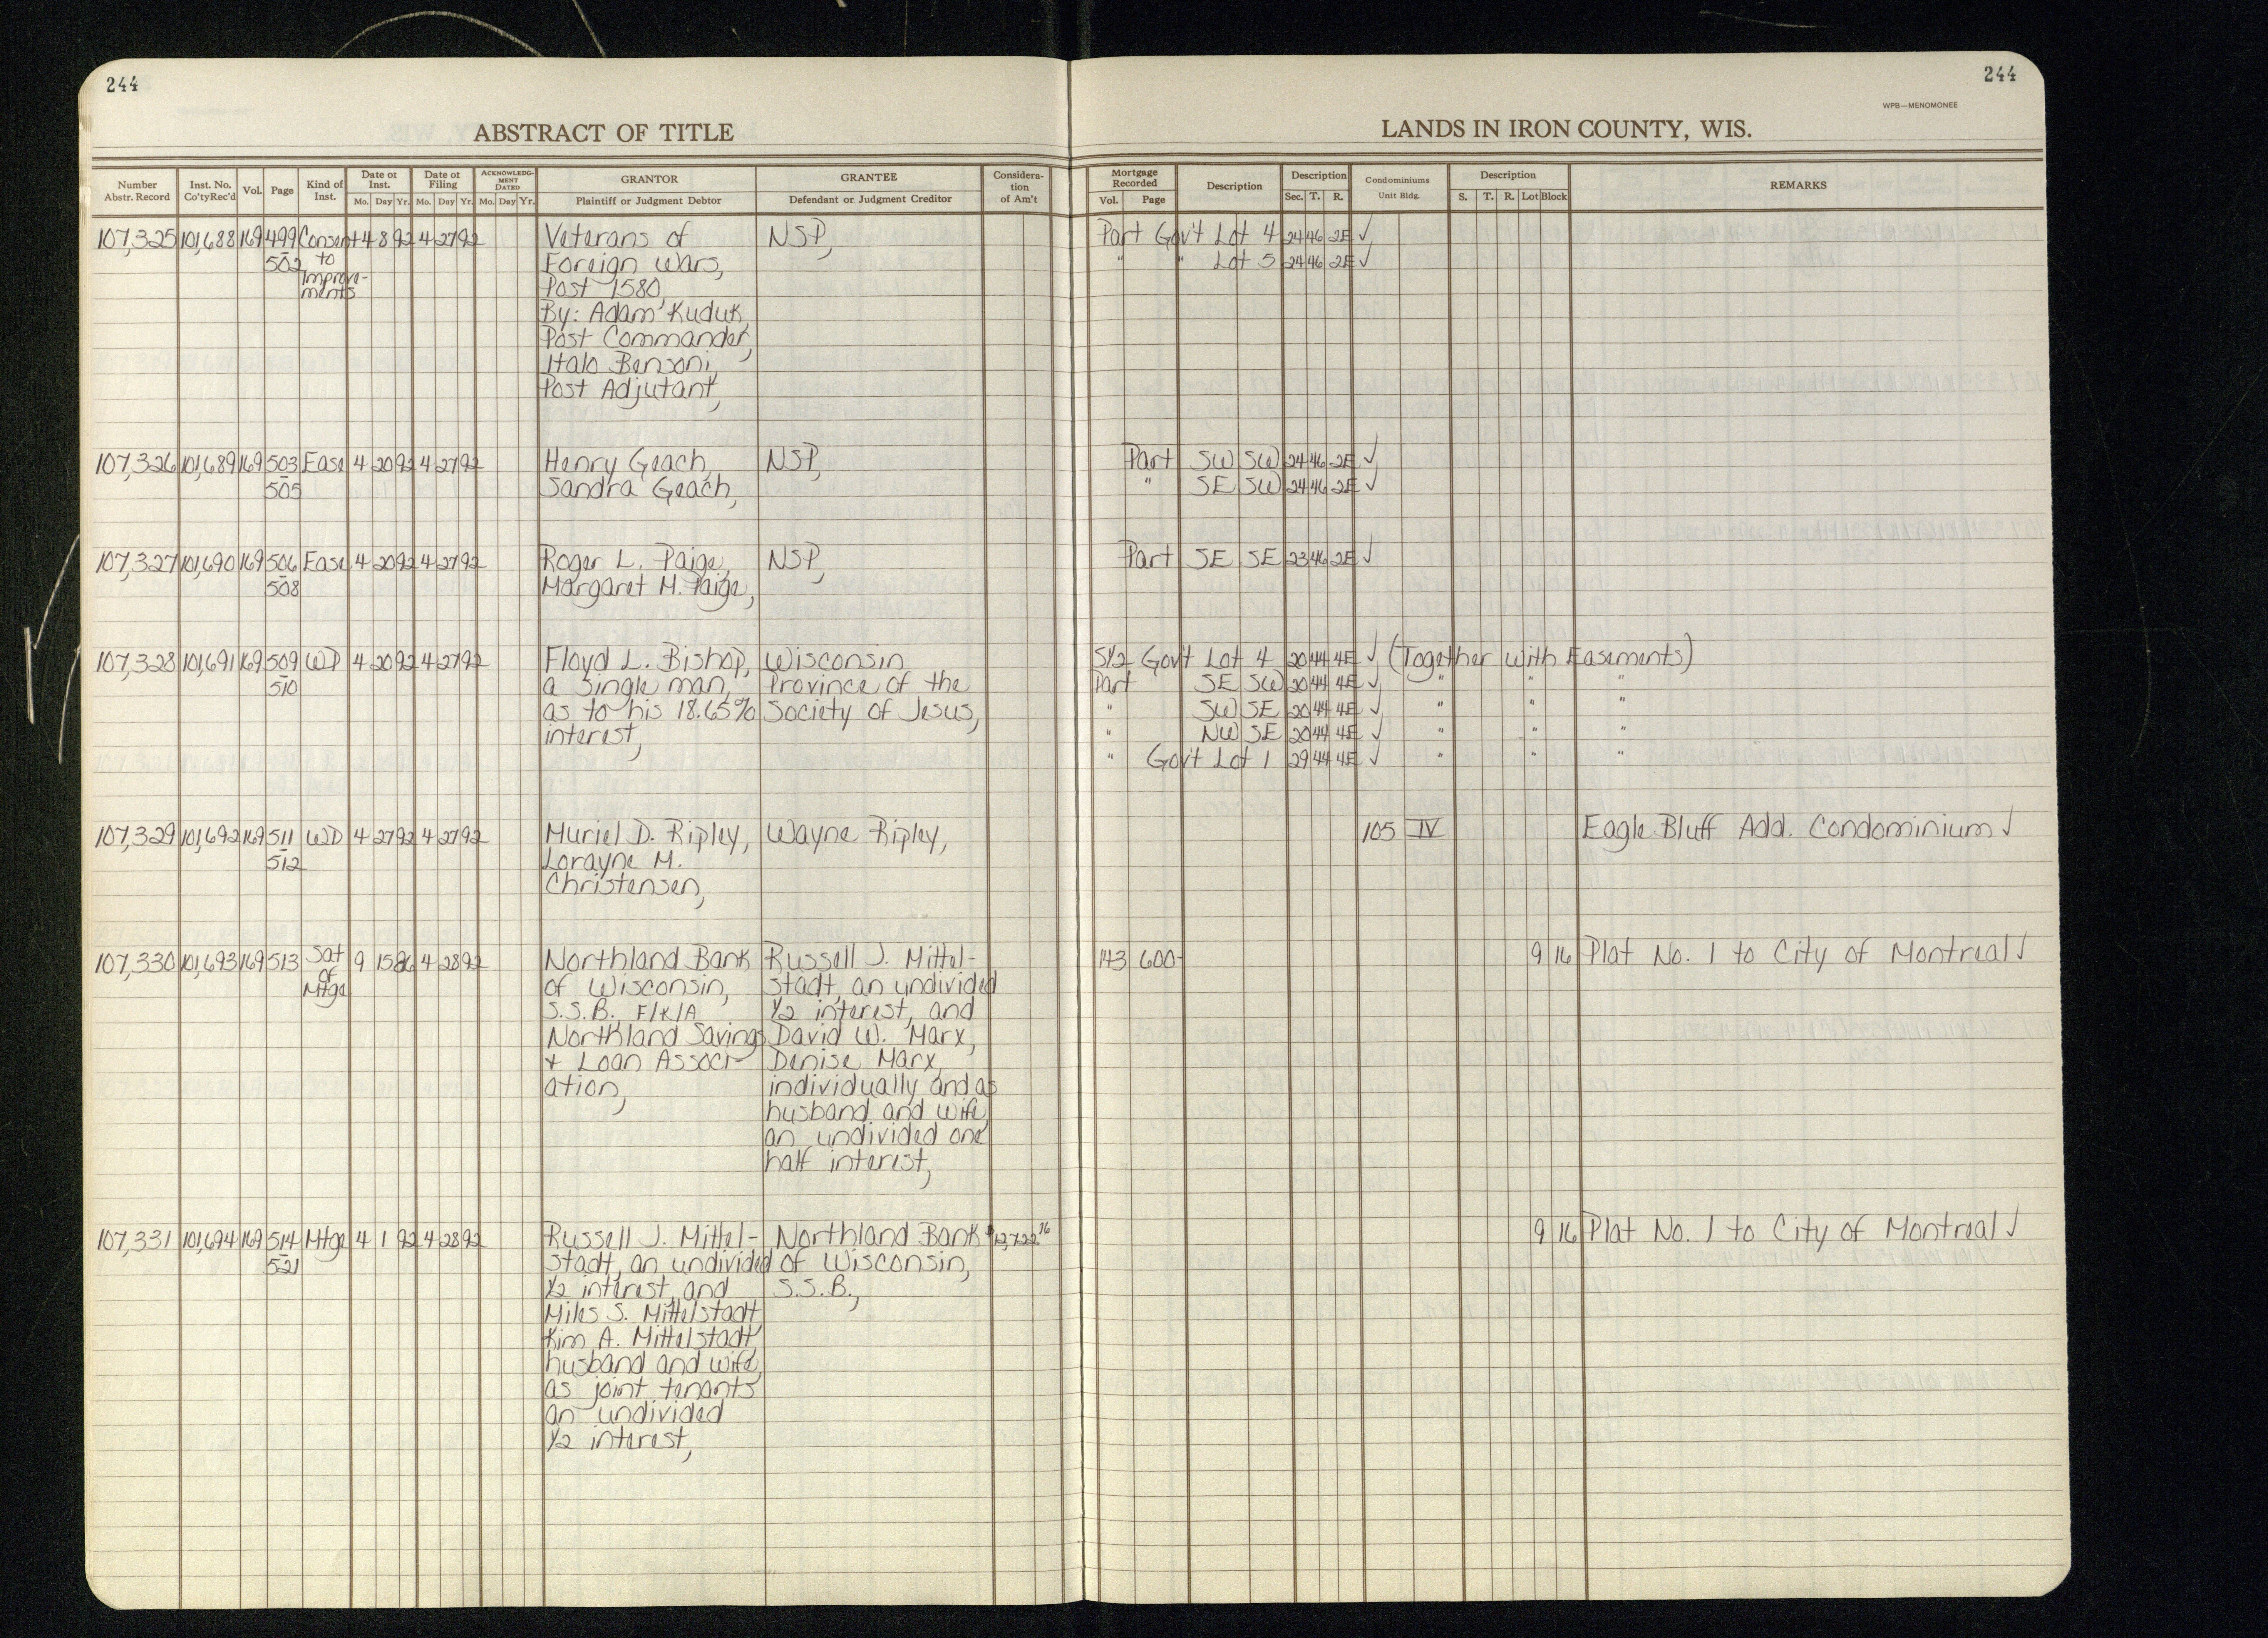 244
244
WPB—MENOMONEE
ABSTRACT OF TITLE
LANDS IN IRON COUNTY, WIS.
Number Abstr. Record | Inst. No. Co'ty Rec'd | Vol. | Page | Kind of Inst. | Date of Inst. Mo. Day Yr. | Date of Filing Mo. Day Yr. | ACKNOWLEDGMENT DATED Mo. Day Yr. | GRANTOR Plaintiff or Judgment Debtor | GRANTEE Defendant or Judgment Creditor | Consideration of Am't | Mortgage Recorded Vol. Page | Description | Description Sec. T. R. | Condominiums Unit Bldg. | Description S. T. R. Lot Block | REMARKS
107,325 101,688 169 499 Consent 4 8 92 4 27 92 Veterans of NSP, Part Gov't Lot 4 24 46 2E ✓
502 to Foreign Wars, " " Lot 5 24 46 2E ✓
Improve- Post 1580,
ments
By: Adam Kuduk,
Post Commander,
Italo Bensoni,
Post Adjutant,
107,326 101,689 169 503 Ease 4 20 92 4 27 92 Henry Geach, NSP, Part SW SW 24 46 2E ✓
505 Sandra Geach, " SE SW 24 46 2E ✓
107,327 101,690 169 506 Ease 4 20 92 4 27 92 Roger L. Paige, NSP, Part SE SE 23 46 2E ✓
508 Margaret M. Paige,
107,328 101,691 169 509 WD 4 20 92 4 27 92 Floyd L. Bishop, Wisconsin S½ Gov't Lot 4 20 44 4E ✓ (Together with Easements)
510 a single man, Province of the Part SE SW 20 44 4E ✓ " " "
as to his 18.65% Society of Jesus, " SW SE 20 44 4E ✓ " " "
interest, " NW SE 20 44 4E ✓ " " "
" Gov't Lot 1 29 44 4E ✓ " " "
107,329 101,692 169 511 WD 4 27 92 4 27 92 Muriel D. Ripley, Wayne Ripley, 105 IV Eagle Bluff Add. Condominium ✓
512 Lorayne M.
Christensen,
107,330 101,693 169 513 Sat 9 15 86 4 28 92 Northland Bank Russell J. Mittel- 143 600 9 16 Plat No. 1 to City of Montreal ✓
of of Wisconsin, stadt, an undivided
Mtge S.S.B., F/K/A ½ interest, and
Northland Savings David W. Marx,
+ Loan Associ- Denise Marx,
ation, individually and as
husband and wife,
an undivided one
half interest,
107,331 101,694 169 514 Mtge 4 1 92 4 28 92 Russell J. Mittel- Northland Bank $12,722.16 9 16 Plat No. 1 to City of Montreal ✓
521 stadt, an undivided of Wisconsin,
½ interest, and S.S.B.,
Miles S. Mittelstadt,
Kim A. Mittelstadt,
husband and wife,
as joint tenants
an undivided
½ interest,